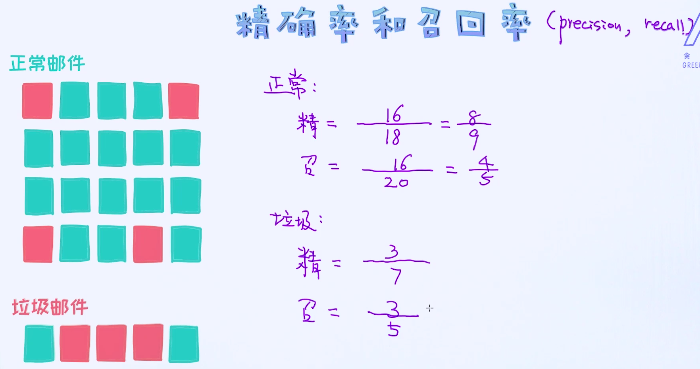 精确率和召回率 (precision, recall)
正常邮件
正常:
精 = 16/18 = 8/9
召 = 16/20 = 4/5
垃圾:
精 = 3/7
垃圾邮件
召 = 3/5